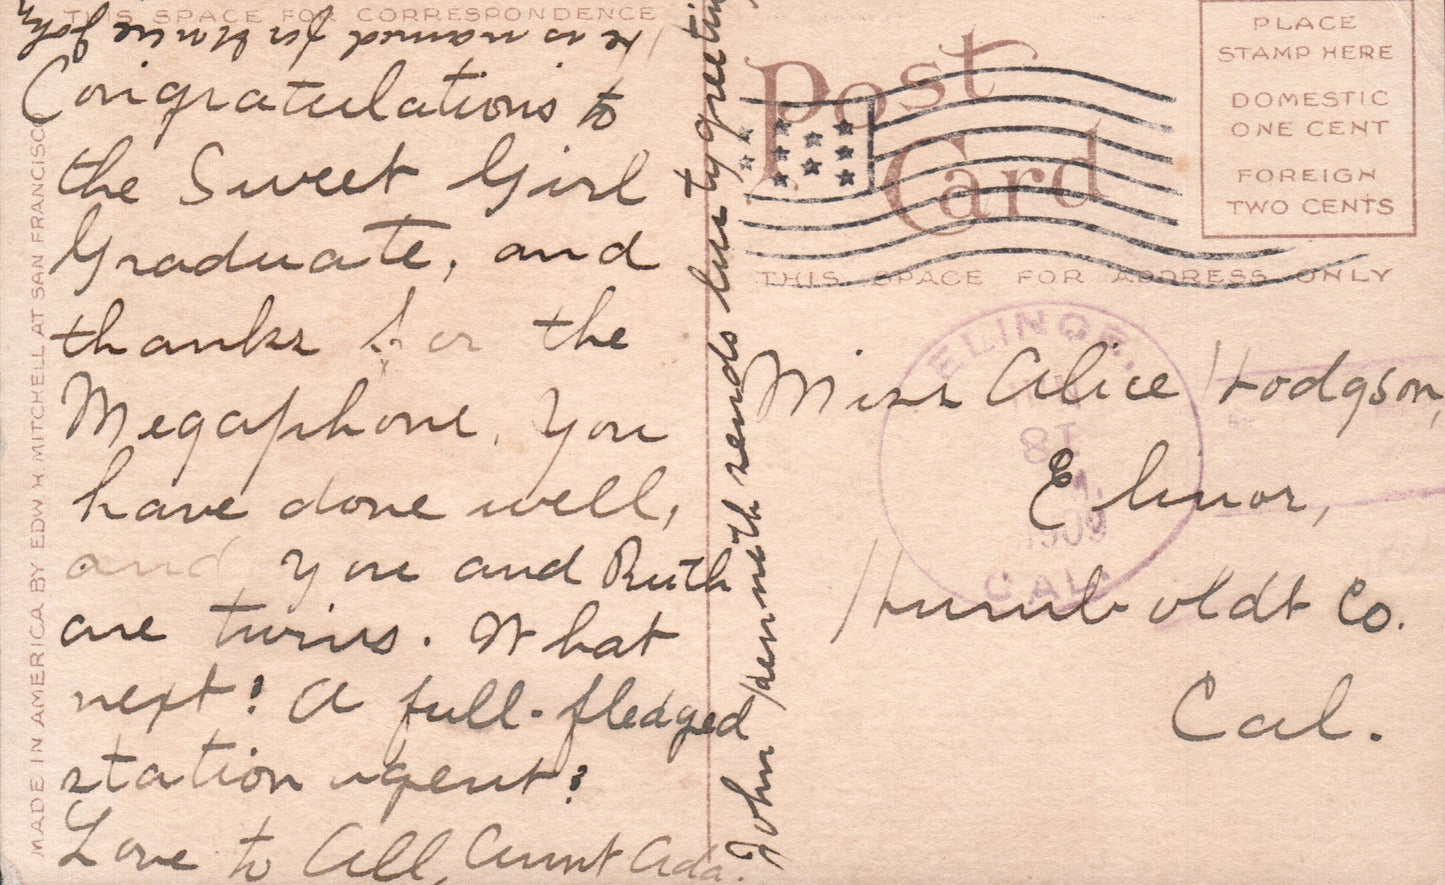 THIS SPACE FOR CORRESPONDENCE
Congratulations to
the Sweet Girl
Graduate, and
thanks for the
Megaphone. You
have done well,
and you and Ruth
are twins. What
next? A full-fledged
station agent?
Love to All, Aunt Ada.
John Kenneth sends hearty greeting
He is named for Uncle John
MADE IN AMERICA BY EDW. H. MITCHELL AT SAN FRANCISCO
Post
Card
PLACE
STAMP HERE
DOMESTIC
ONE CENT
FOREIGN
TWO CENTS
THIS SPACE FOR ADDRESS ONLY
ELINOR,
1909
CAL.
Miss Alice Hodgson,
Elinor,
Humboldt Co.
Cal.